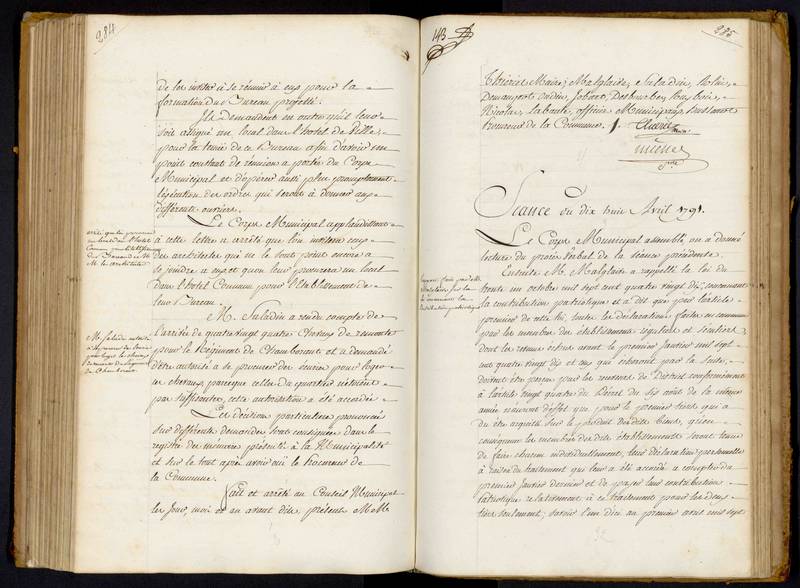 284
de les inviter à se réunir à eux pour la
formation du Bureau projetté.
Ils demandent en outre qu'il leur
soit assigné un local dans l'hotel de Ville
pour la tenue de ce Bureau afin d'avoir un
point constant de réunion a portée du Corps
Municipal et d'opérer aussi plus promptement
l'exécution des ordres qui seront à donner aux
différents ouvriers.
Le Corps Municipal applaudissant
à cette lettre a arrêté que l'on invitera ceux
des architectes qui ne le sont point encore à
se joindre a eux et qu'on leur procurera un local
dans l'hotel Commun pour l'Etablissement de
leur Bureau.
M. Saladin a rendu compte de
l'arrivée de quatre vingt quatre Chevaux de remonte
pour le Régiment de Chamborant et a demandé
d'être autorisé a se procurer des écuries pour loger
ces chevaux, parceque celles du quartier n'étoient
pas suffisantes, cette autorisation a été accordée.
Les décisions particulieres prononcées
sur différentes demandes sont consignées dans le
registre des mémoires présentés à la Municipalité
et sur le tout après avoir oüi le Procureur de
la Commune.
Fait et arrêté au Conseil Municipal
les Jour, mois et an avant dits, présents M. M.
M. Saladin autorisé
de Chamborant
143
285
Thieriet Maire; Malglaive, Saladin, Rolin,
Demangeot, Oudin, Jobart, Desbourbes, Toussaint,
Nicolas, Labauté, officiers Municipaux,
Procureur de la Commune.
Thieriet
Maire
Séance du dix huit Avril 1791.
Le Corps Municipal assemblé, on a donné
lecture du procès Verbal de la séance précédente.
Ensuite M. Malglaive a rappellé la loi du
trente un octobre mil sept cent quatre vingt dix, concernant
la contribution patriotique et a dit que par l'article
premier de cette loi, toutes les déclarations faites en commun
par les membres des établissements réguliers et séculiers,
dont les termes échus avant le premier Janvier mil sept
cent quatre vingt dix et ceux qui écherront par la suite,
doivent être perçus par les receveurs de District conformément
à l'article vingt quatre du Décret du six août de la même
année n'auront d'effet que pour le premier tiers qui a
du être acquitté sur le produit des dits biens, qu'en
conséquence les membres des dits établissements seront tenus
de faire chacun individuellement, leur déclaration personnelle
à raison du traitement qui leur a été accordé a compter du
premier Janvier dernier et de payer leur contribution
patriotique relativement à ce traitement pour les deux
tiers seulement; savoir l'un d'ici au premier avril mil sept